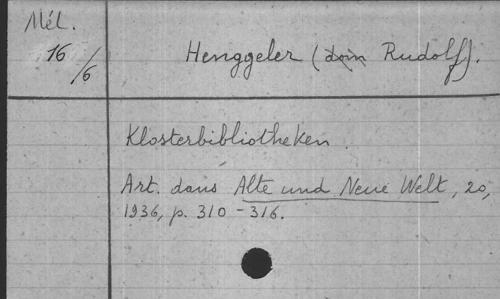 Mél.
16/6
Henggeler (dom Rudolf).
Klosterbibliotheken.
Art. dans Alte und Neue Welt, 20,
1936, p. 310-316.